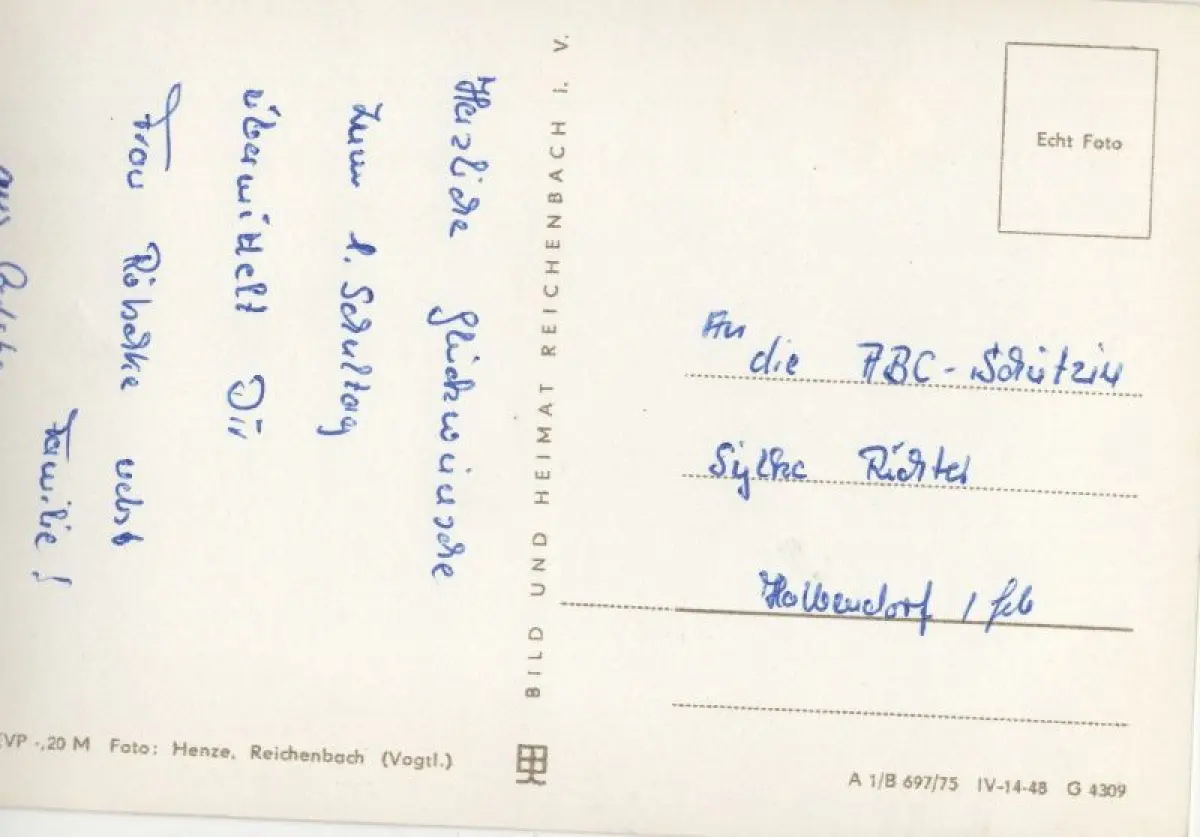 Herzliche Glückwünsche
zum 1. Schultag
übermittelt Dir
Frau Röschke nebst
Familie!
aus
BILD UND HEIMAT REICHENBACH I. V.
Echt Foto
An
die ABC-Schützin
Sylke Richter
Halbendorf / Geb
EVP -,20 M Foto: Henze, Reichenbach (Vogtl.)
A 1/B 697/75 IV-14-48 G 4309